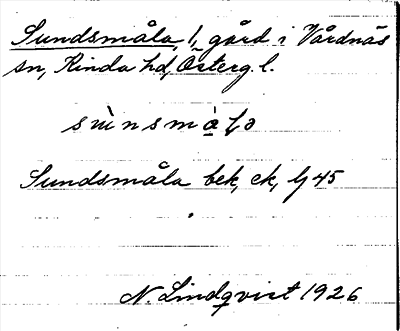 Sundsmåla, 1, gård i Vårdnäs
sn, Kinda hd, Österg. l.
sùnsmåla
Sundsmåla bek, ek, lj 45
N. Lindqvist 1926